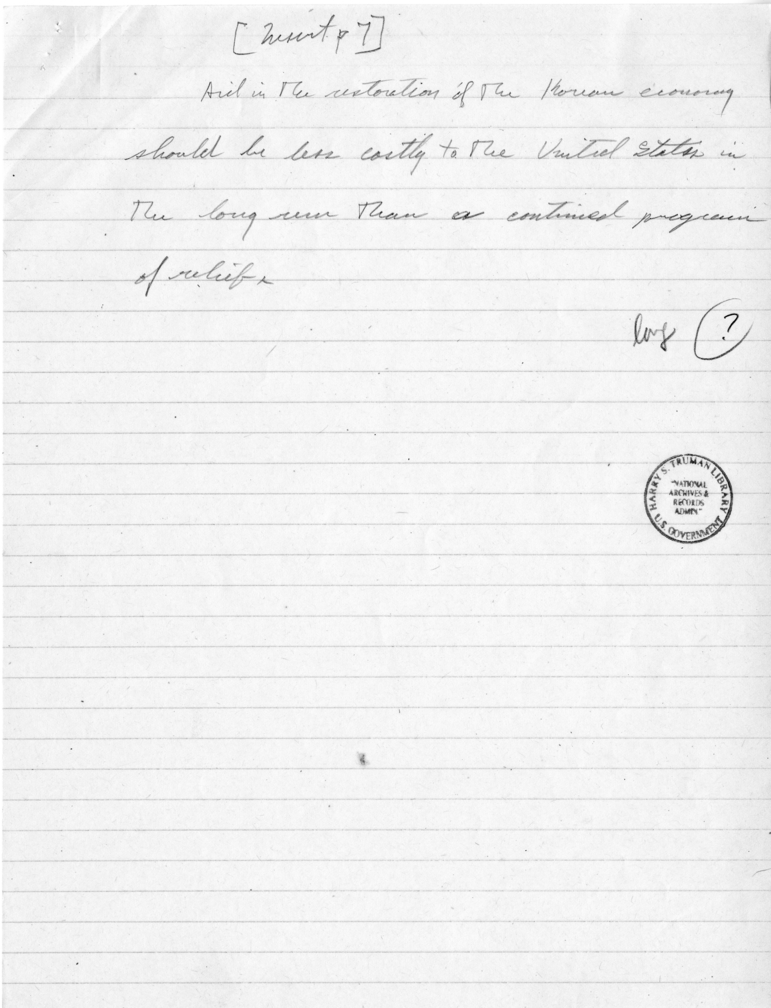 [Insert p 7]
Aid in the restoration of the Korean economy
should be less costly to the United States in
the long run than a continued program
of relief.
long ?
HARRY S. TRUMAN LIBRARY
"NATIONAL
ARCHIVES &
RECORDS
ADMIN"
U.S. GOVERNMENT